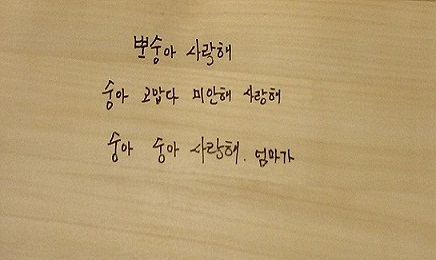 뽀숭아 사랑해
숭아 고맙다 미안해 사랑해
숭아 숭아 사랑해. 엄마가